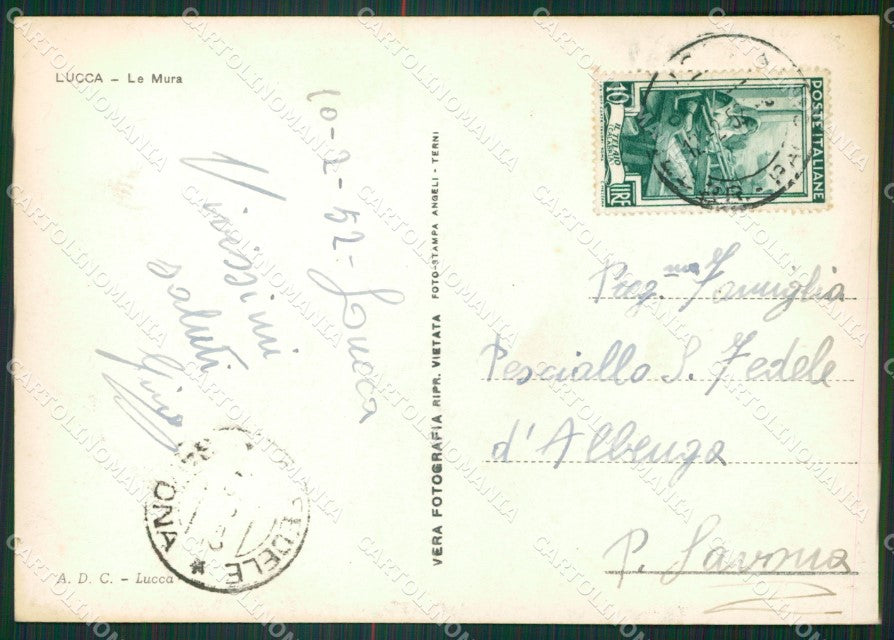 LUCCA – Le Mura
10-2-52- Lucca
Vivissimi
saluti
Gino
A. D. C. – Lucca
VERA FOTOGRAFIA RIPR. VIETATA FOTO-STAMPA ANGELI - TERNI
POSTE ITALIANE
10 LIRE
Preg.ma Famiglia
Pesciallo S. Fedele
d'Albenga
P. Savona
CARTOLINOMANIA